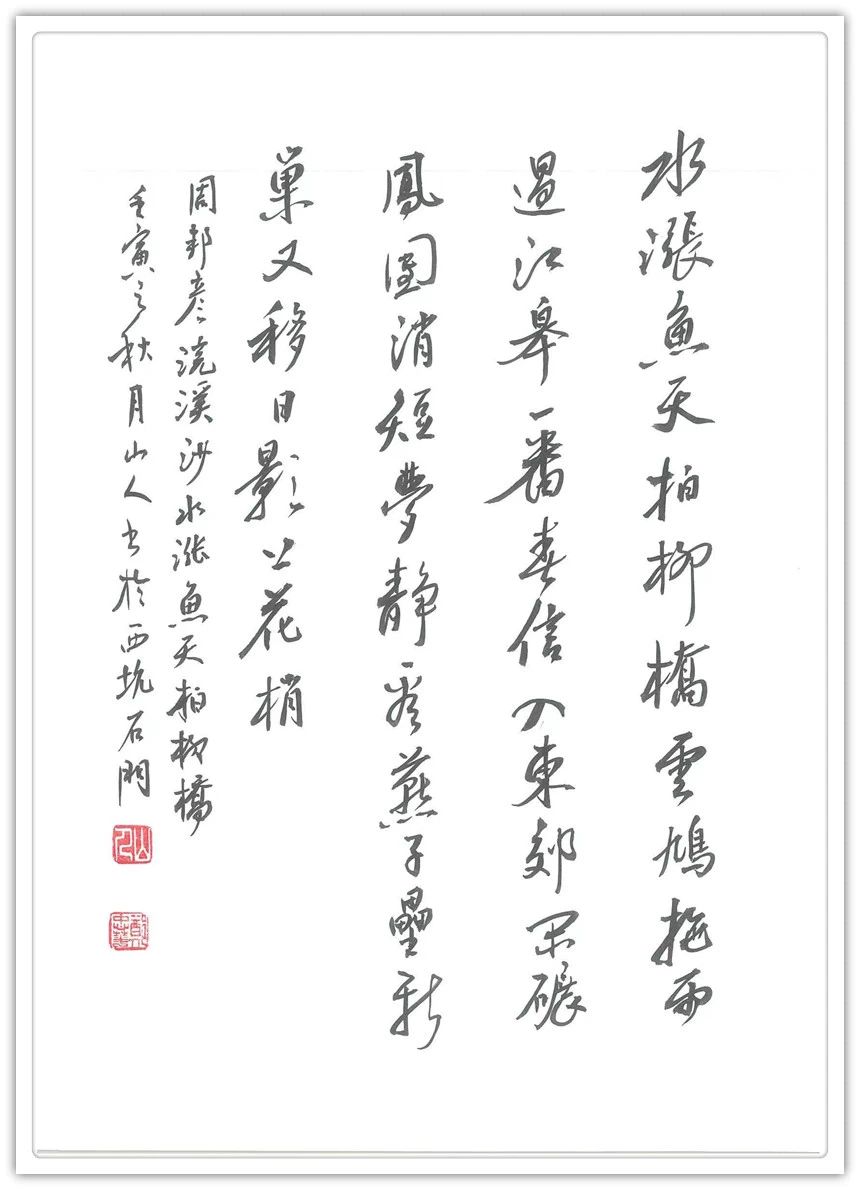 水漲魚天拍柳橋雲鳩拖雨
過江皋一番春信入東郊閑碾
鳳團消短夢靜看燕子壘新
巢又移日影上花梢
周邦彥浣溪沙水漲魚天拍柳橋
壬寅之秋月山人書於西坑石門
山人